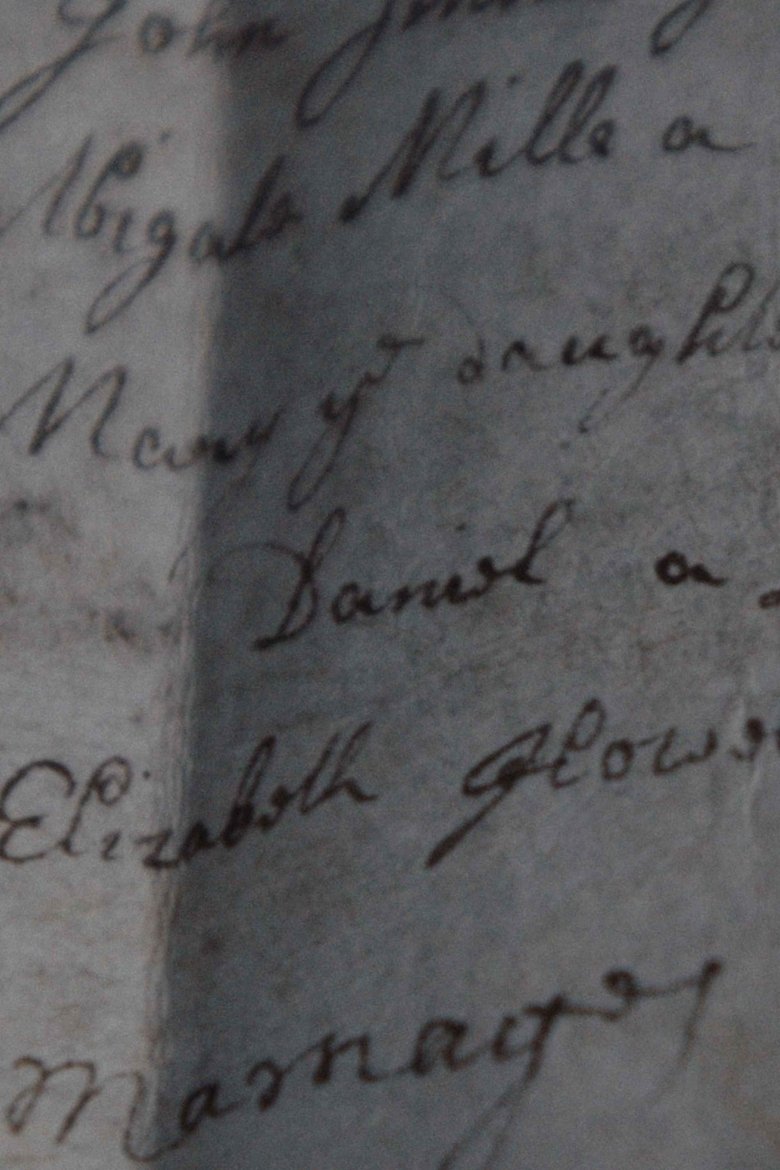 John
Abigale Mills a
Mary yᵉ daughte
Daniel a
Elizabeth Glover
Marriages